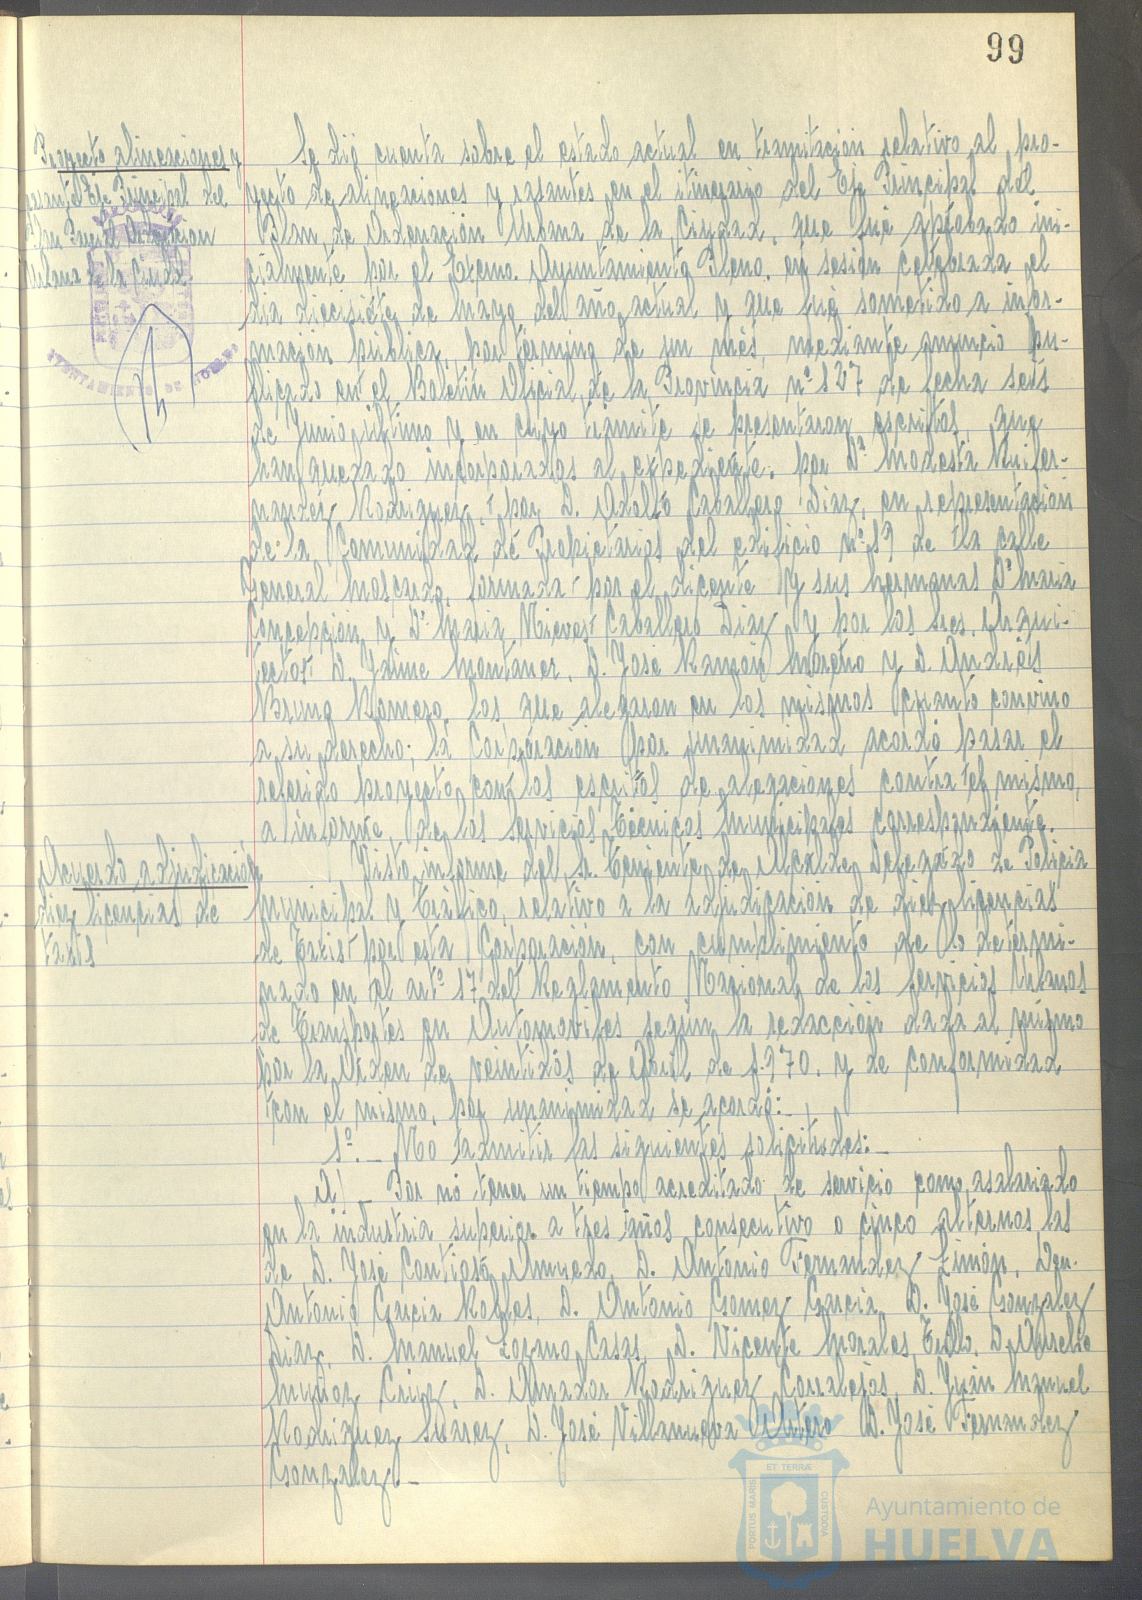 99
Proyecto alineaciones y
rasantes Eje Principal del
Plan Gral Ordenación
Urbana de la Ciudad
AYUNTAMIENTO DE HUELVA
Se dió cuenta sobre el estado actual en tramitación relativo al pro-
yecto de alineaciones y rasantes en el itinerario del Eje Principal del
Plan de Ordenación Urbana de la Ciudad, que fué aprobado ini-
cialmente por el Excmo. Ayuntamiento Pleno, en sesión celebrada el
día diecisiete de mayo del año actual y que fué sometido a infor-
mación pública, por término de un més, mediante anuncio pu-
blicado en el Boletín Oficial de la Provincia nº 127 de fecha seis
de Junio último y en cuyo trámite se presentaron escritos, que
han quedado incorporados al expediente, por Dª Modesta Ruifer-
nandez Rodriguez, por D. Adolfo Caballero Diaz, en representación
de la Comunidad de Propietarios del edificio nº 19 de la calle
General Moscardo, formada por el dicente y sus hermanas Dª Maria
Concepción y Dª Maria Nieves Caballero Diaz y por los Sres. Arqui-
tectos D. Jaime Montaner, D. José Ramón Moreno y D. Andrés
Bruno Romero, los que alegaron en los mismos cuanto convino
a su derecho; la Corporación por unanimidad acordó pasar el
referido proyecto con los escritos de alegaciones contra el mismo,
a informe de los Servicios Técnicos Municipales correspondiente.
Acuerdo adjudicación
diez licencias de
taxis
Visto informe del Sr. Teniente de Alcalde Delegado de Policia
Municipal y Tráfico, relativo a la adjudicación de diez licencias
de Taxis por esta Corporación, con cumplimiento de lo determi-
nado en el artº 17 del Reglamento Nacional de los Servicios Urbanos
de Transportes en Automoviles según la redacción dada al mismo
por la Orden de veintidós de Abril de 1.970, y de conformidad
con el mismo, por unanimidad se acordó:-
1º.- No admitir las siguientes solicitudes:-
A).- Por nó tener un tiempo acreditado de servicio como asalariado
en la industria superior a tres años consecutivo o cinco alternos las
de D. José Contioso Amuedo, D. Antonio Fernandez Limón, Don
Antonio Garcia Robles, D. Antonio Gomez Garcia, D. José Gonzalez
Diaz, D. Manuel Lozano Casas, D. Vicente Morales Tello, D. Aurelio
Muñoz Cruz, D. Amador Rodriguez Corralejos, D. Juan Manuel
Rodriguez Suarez, D. José Villanueva Otero D. José Fernandez
Gonzalez.-
ET TERRÆ
PORTUS MARIS
CUSTODIA
Ayuntamiento de
HUELVA